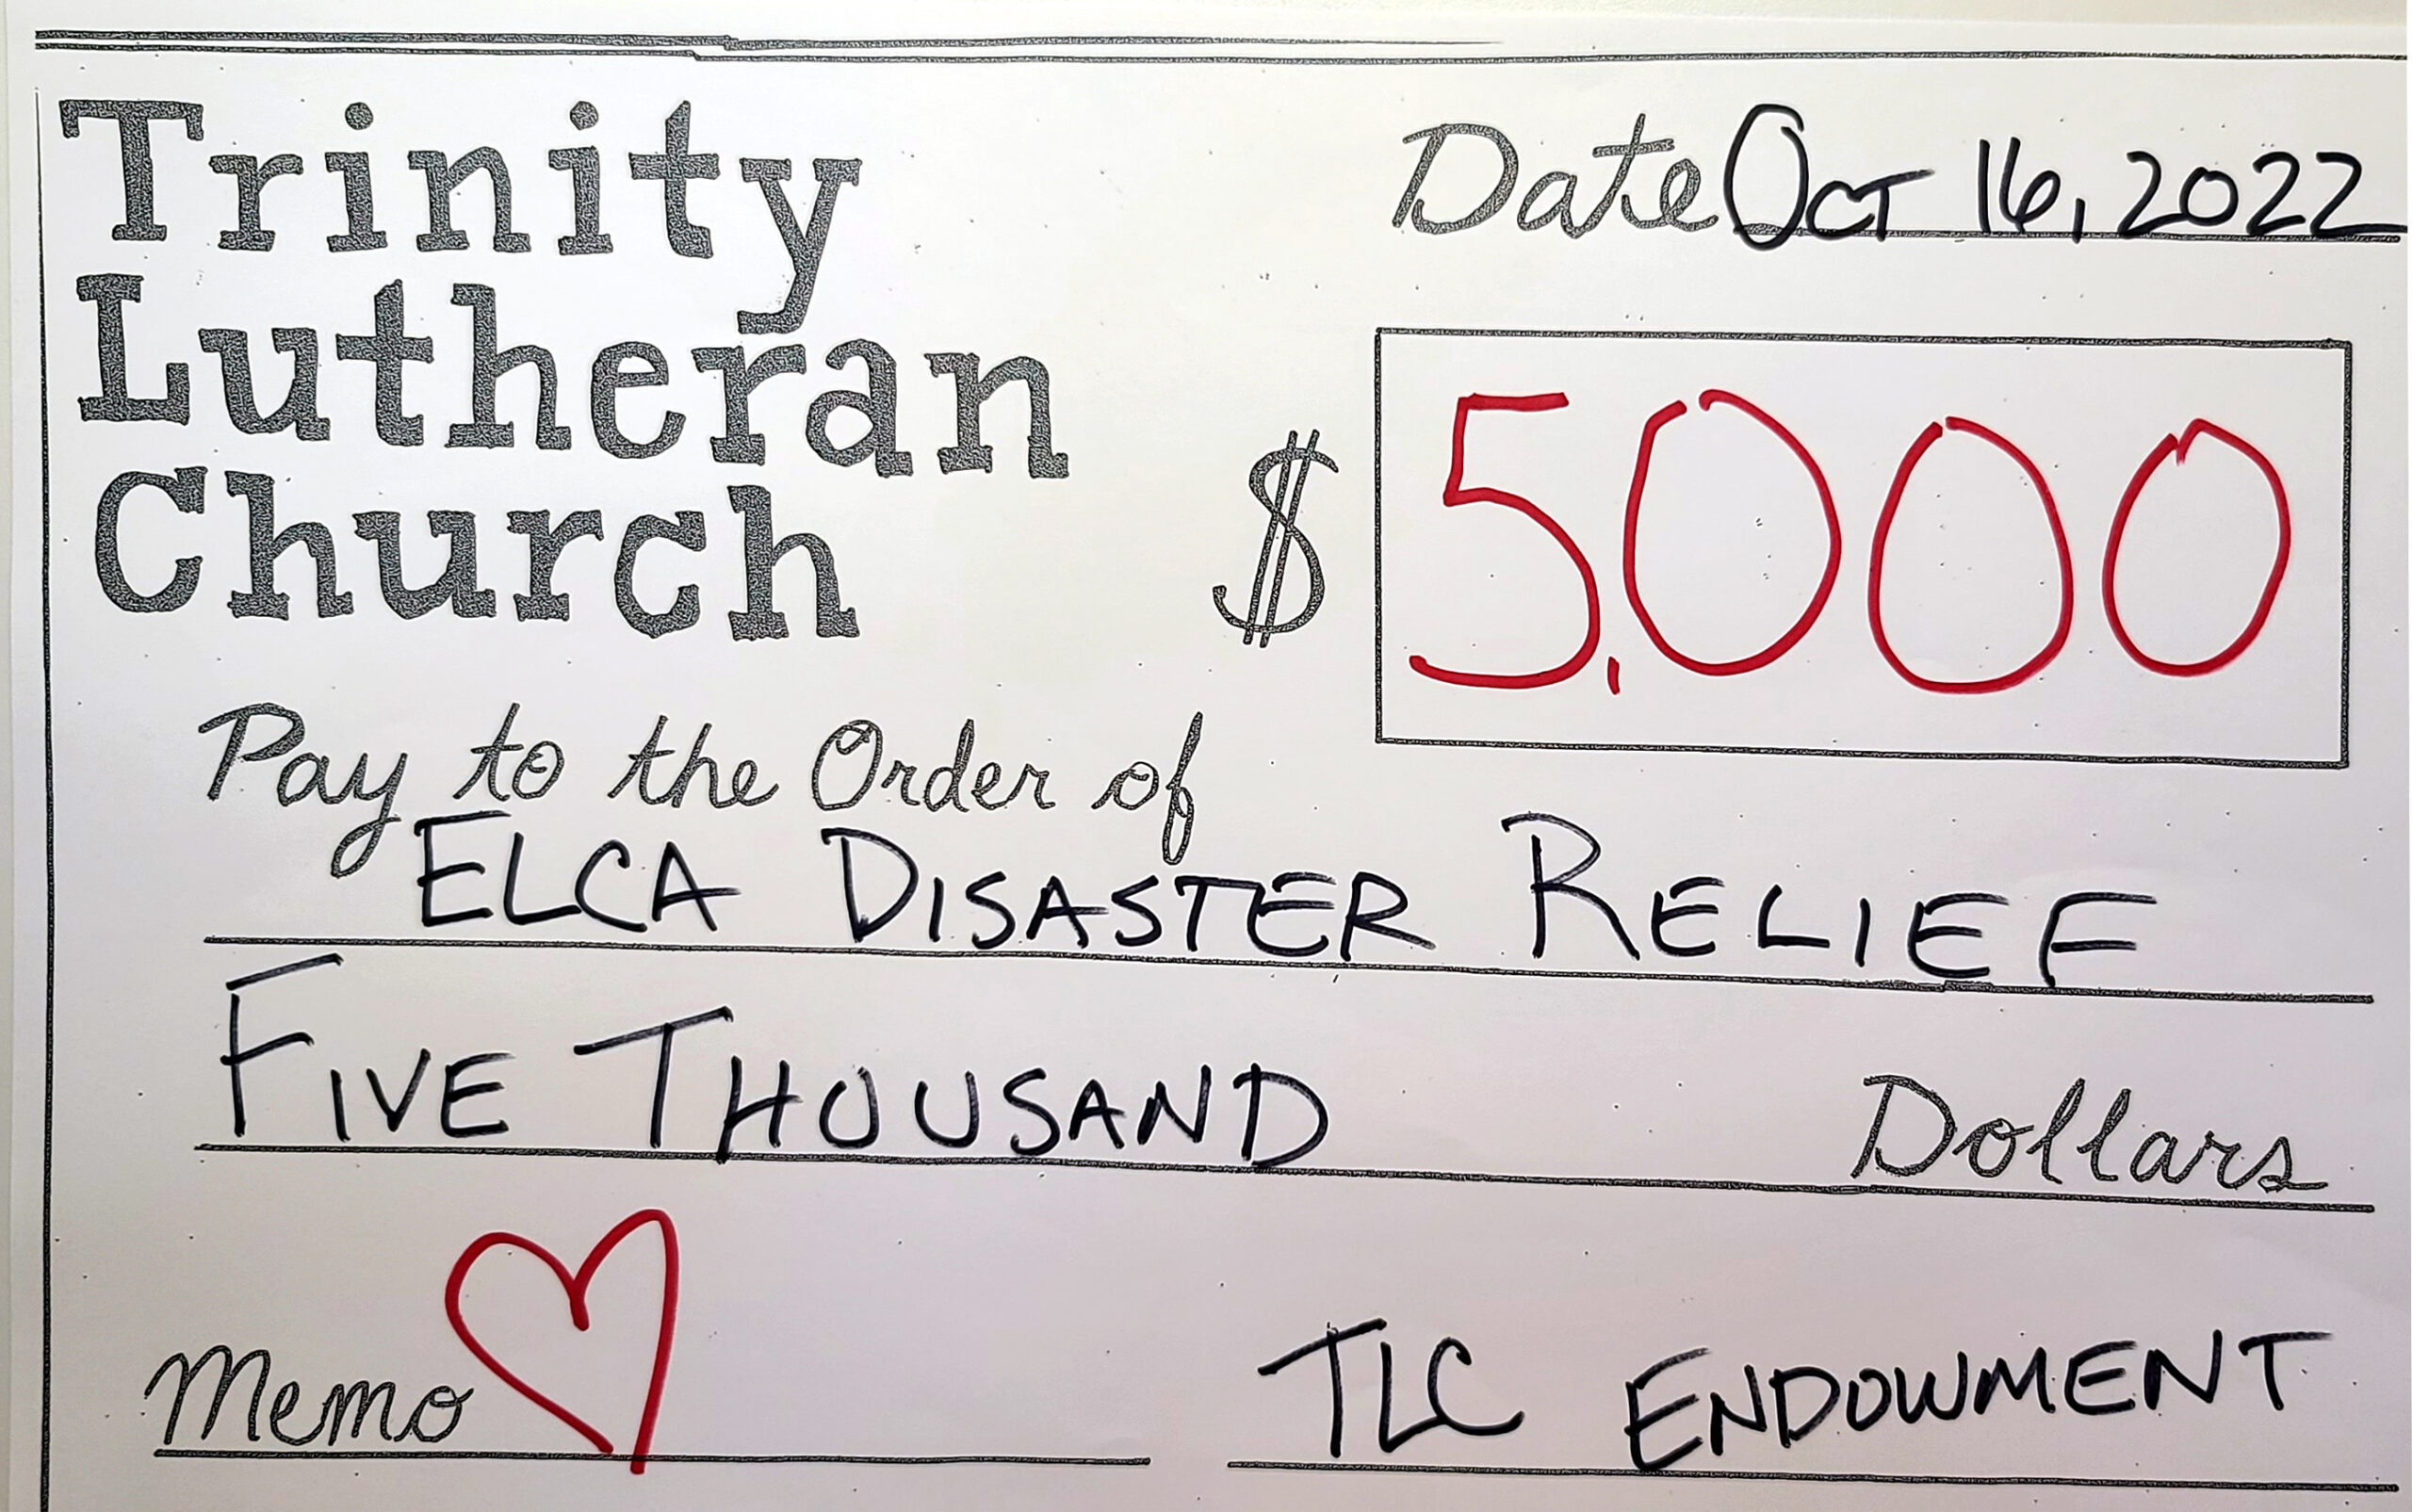 Trinity
Lutheran
Church
Date Oct 16, 2022
$ 5,000
Pay to the Order of
ELCA DISASTER RELIEF
FIVE THOUSAND Dollars
Memo
TLC ENDOWMENT